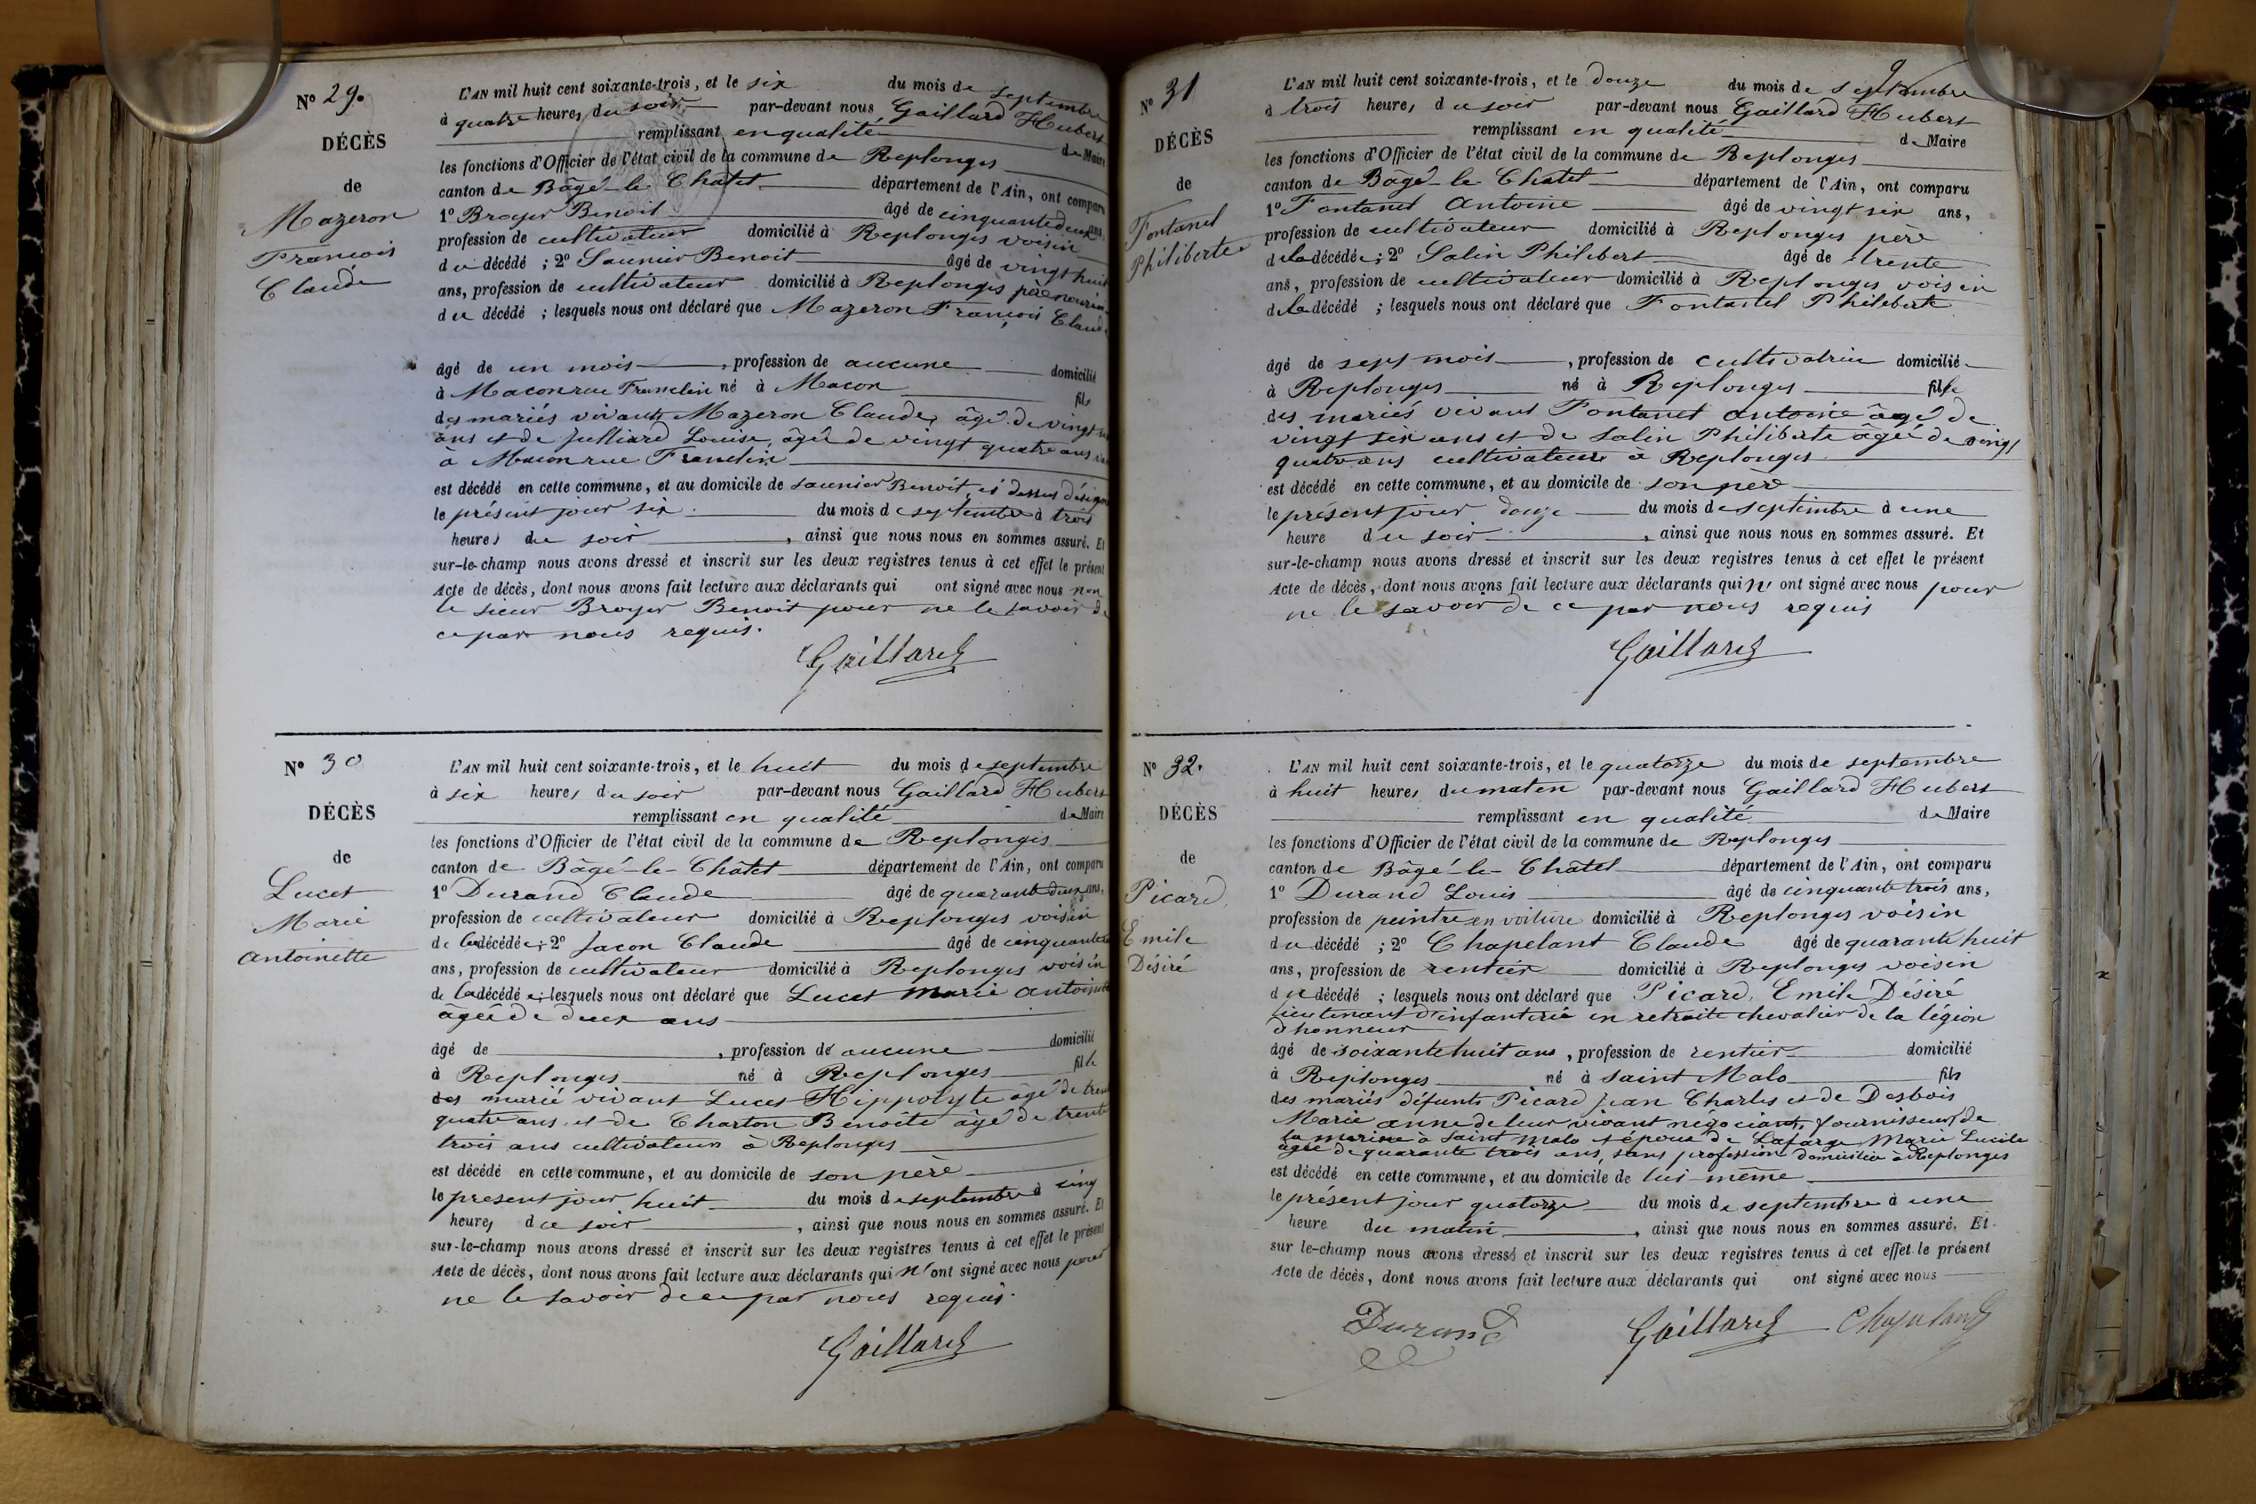 N° 29.
DÉCÈS
de
Mazeron
François
Claude
L'AN mil huit cent soixante-trois, et le six du mois de septembre
à quatre heures du soir par-devant nous Gaillard Hubert
remplissant en qualité de Maire
les fonctions d'Officier de l'état civil de la commune de Replonges
canton de Bâgé-le-Châtel département de l'Ain, ont comparu
1° Broyer Benoit âgé de cinquante deux ans,
profession de cultivateur domicilié à Replonges voisin
du décédé ; 2° Saunier Benoit âgé de vingt huit
ans, profession de cultivateur domicilié à Replonges père nourricier
du décédé ; lesquels nous ont déclaré que Mazeron François Claude
âgé de un mois, profession de aucune domicilié
à Macon rue Franclin né à Macon fils
des mariés vivants Mazeron Claude, âgé de vingt
ans et de Julliard Louise, âgée de vingt quatre ans
à Macon rue Franclin
est décédé en cette commune, et au domicile de Saunier Benoit, ci dessus désigné
le présent jour six du mois de septembre à trois
heures du soir, ainsi que nous nous en sommes assuré. Et
sur-le-champ nous avons dressé et inscrit sur les deux registres tenus à cet effet le présent
Acte de décès, dont nous avons fait lecture aux déclarants qui ont signé avec nous non
le sieur Broyer Benoit pour ne le savoir de
ce par nous requis.
Gaillard
N° 30
DÉCÈS
de
Lucet
Marie
antoinette
L'AN mil huit cent soixante-trois, et le huit du mois de septembre
à six heures du soir par-devant nous Gaillard Hubert
remplissant en qualité de Maire
les fonctions d'Officier de l'état civil de la commune de Replonges
canton de Bâgé-le-Châtel département de l'Ain, ont comparu
1° Durand Claude âgé de quarante deux ans,
profession de cultivateur domicilié à Replonges voisin
de la décédée ; 2° Jacon Claude âgé de cinquante
ans, profession de cultivateur domicilié à Replonges voisin
de la décédée ; lesquels nous ont déclaré que Lucet Marie antoinette
âgée de deux ans
âgé de , profession de aucune domicilié
à Replonges né à Replonges fille
des marié vivant Lucet Hippolyte âgé de trente
quatre ans et de Charton Benoîte âgé de trente
trois ans cultivateurs à Replonges
est décédé en cette commune, et au domicile de son père
le présent jour huit du mois de septembre à cinq
heures du soir, ainsi que nous nous en sommes assuré. Et
sur-le-champ nous avons dressé et inscrit sur les deux registres tenus à cet effet le présent
Acte de décès, dont nous avons fait lecture aux déclarants qui n'ont signé avec nous pour
ne le savoir de ce par nous requis.
Gaillard
9
N° 31
DÉCÈS
de
Fontanel
Philiberte
L'AN mil huit cent soixante-trois, et le douze du mois de septembre
à trois heures du soir par-devant nous Gaillard Hubert
remplissant en qualité de Maire
les fonctions d'Officier de l'état civil de la commune de Replonges
canton de Bâgé-le-Châtel département de l'Ain, ont comparu
1° Fontanel Antoine âgé de vingt six ans,
profession de cultivateur domicilié à Replonges père
de la décédée ; 2° Salin Philibert âgé de trente
ans, profession de cultivateur domicilié à Replonges voisin
de la décédé ; lesquels nous ont déclaré que Fontanel Philiberte
âgé de sept mois, profession de cultivatrice domicilié
à Replonges né à Replonges fille
des mariés vivant Fontanel antoine âgé de
vingt six ans et de Salin Philiberte âgée de vingt
quatre ans cultivateurs à Replonges
est décédé en cette commune, et au domicile de son père
le présent jour douze du mois de septembre à une
heure du soir, ainsi que nous nous en sommes assuré. Et
sur-le-champ nous avons dressé et inscrit sur les deux registres tenus à cet effet le présent
Acte de décès, dont nous avons fait lecture aux déclarants qui n'ont signé avec nous pour
ne le savoir de ce par nous requis
Gaillard
N° 32.
DÉCÈS
de
Picard,
Emile
Désiré
L'AN mil huit cent soixante-trois, et le quatorze du mois de septembre
à huit heures du matin par-devant nous Gaillard Hubert
remplissant en qualité de Maire
les fonctions d'Officier de l'état civil de la commune de Replonges
canton de Bâgé-le-Châtel département de l'Ain, ont comparu
1° Durand Louis âgé de cinquante trois ans,
profession de peintre en voiture domicilié à Replonges voisin
du décédé ; 2° Chapelant Claude âgé de quarante huit
ans, profession de rentier domicilié à Replonges voisin
du décédé ; lesquels nous ont déclaré que Picard, Emile Désiré
lieutenant d'infanterie en retraite chevalier de la légion
d'honneur
âgé de soixante huit ans, profession de rentier domicilié
à Replonges né à Saint Malo fils
des mariés défunts Picard Jean Charles et de Desbois
Marie anne de leur vivant négociant, fournisseur de
la marine à Saint Malo époux de Lafarge Marie Lucile
âgée de quarante trois ans, sans profession domiciliée à Replonges
est décédé en cette commune, et au domicile de lui même
le présent jour quatorze du mois de septembre à une
heure du matin, ainsi que nous nous en sommes assuré. Et
sur le-champ nous avons dressé et inscrit sur les deux registres tenus à cet effet le présent
Acte de décès, dont nous avons fait lecture aux déclarants qui ont signé avec nous
Durand Gaillard Chapelant